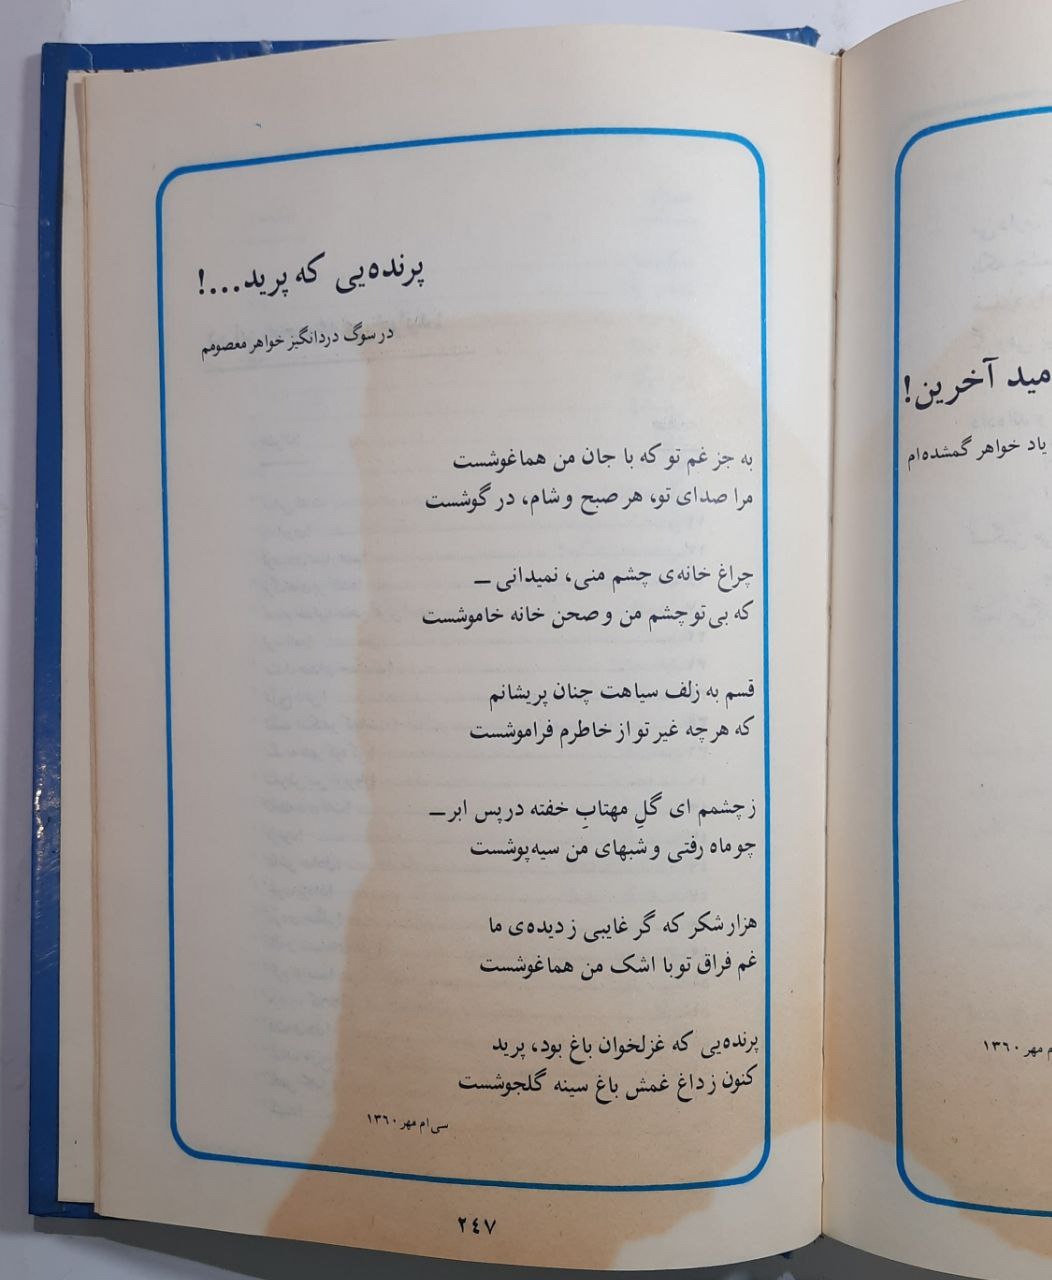 پرنده‌یی که پرید...!
در سوگ دردانگیز خواهر معصومم
به جز غم تو که با جان من هماغوشست
مرا صدای تو، هر صبح و شام، در گوشست
چراغ خانه‌ی چشم منی، نمیدانی ــ
که بی‌تو چشم من و صحن خانه خاموشست
قسم به زلف سیاهت چنان پریشانم
که هرچه غیر تو از خاطرم فراموشست
ز چشمم ای گلِ مهتابِ خفته در پس ابر ــ
چو ماه رفتی و شبهای من سیه‌پوشست
هزار شکر که گر غایبی ز دیده‌ی ما
غم فراق تو با اشک من هماغوشست
پرنده‌یی که غزلخوان باغ بود، پرید
کنون ز داغ غمش باغ سینه گلجوشست
سی‌ام مهر ۱۳٦۰
۲٤۷
مید آخرین!
یاد خواهر گمشده‌ام
م مهر ۱۳٦۰